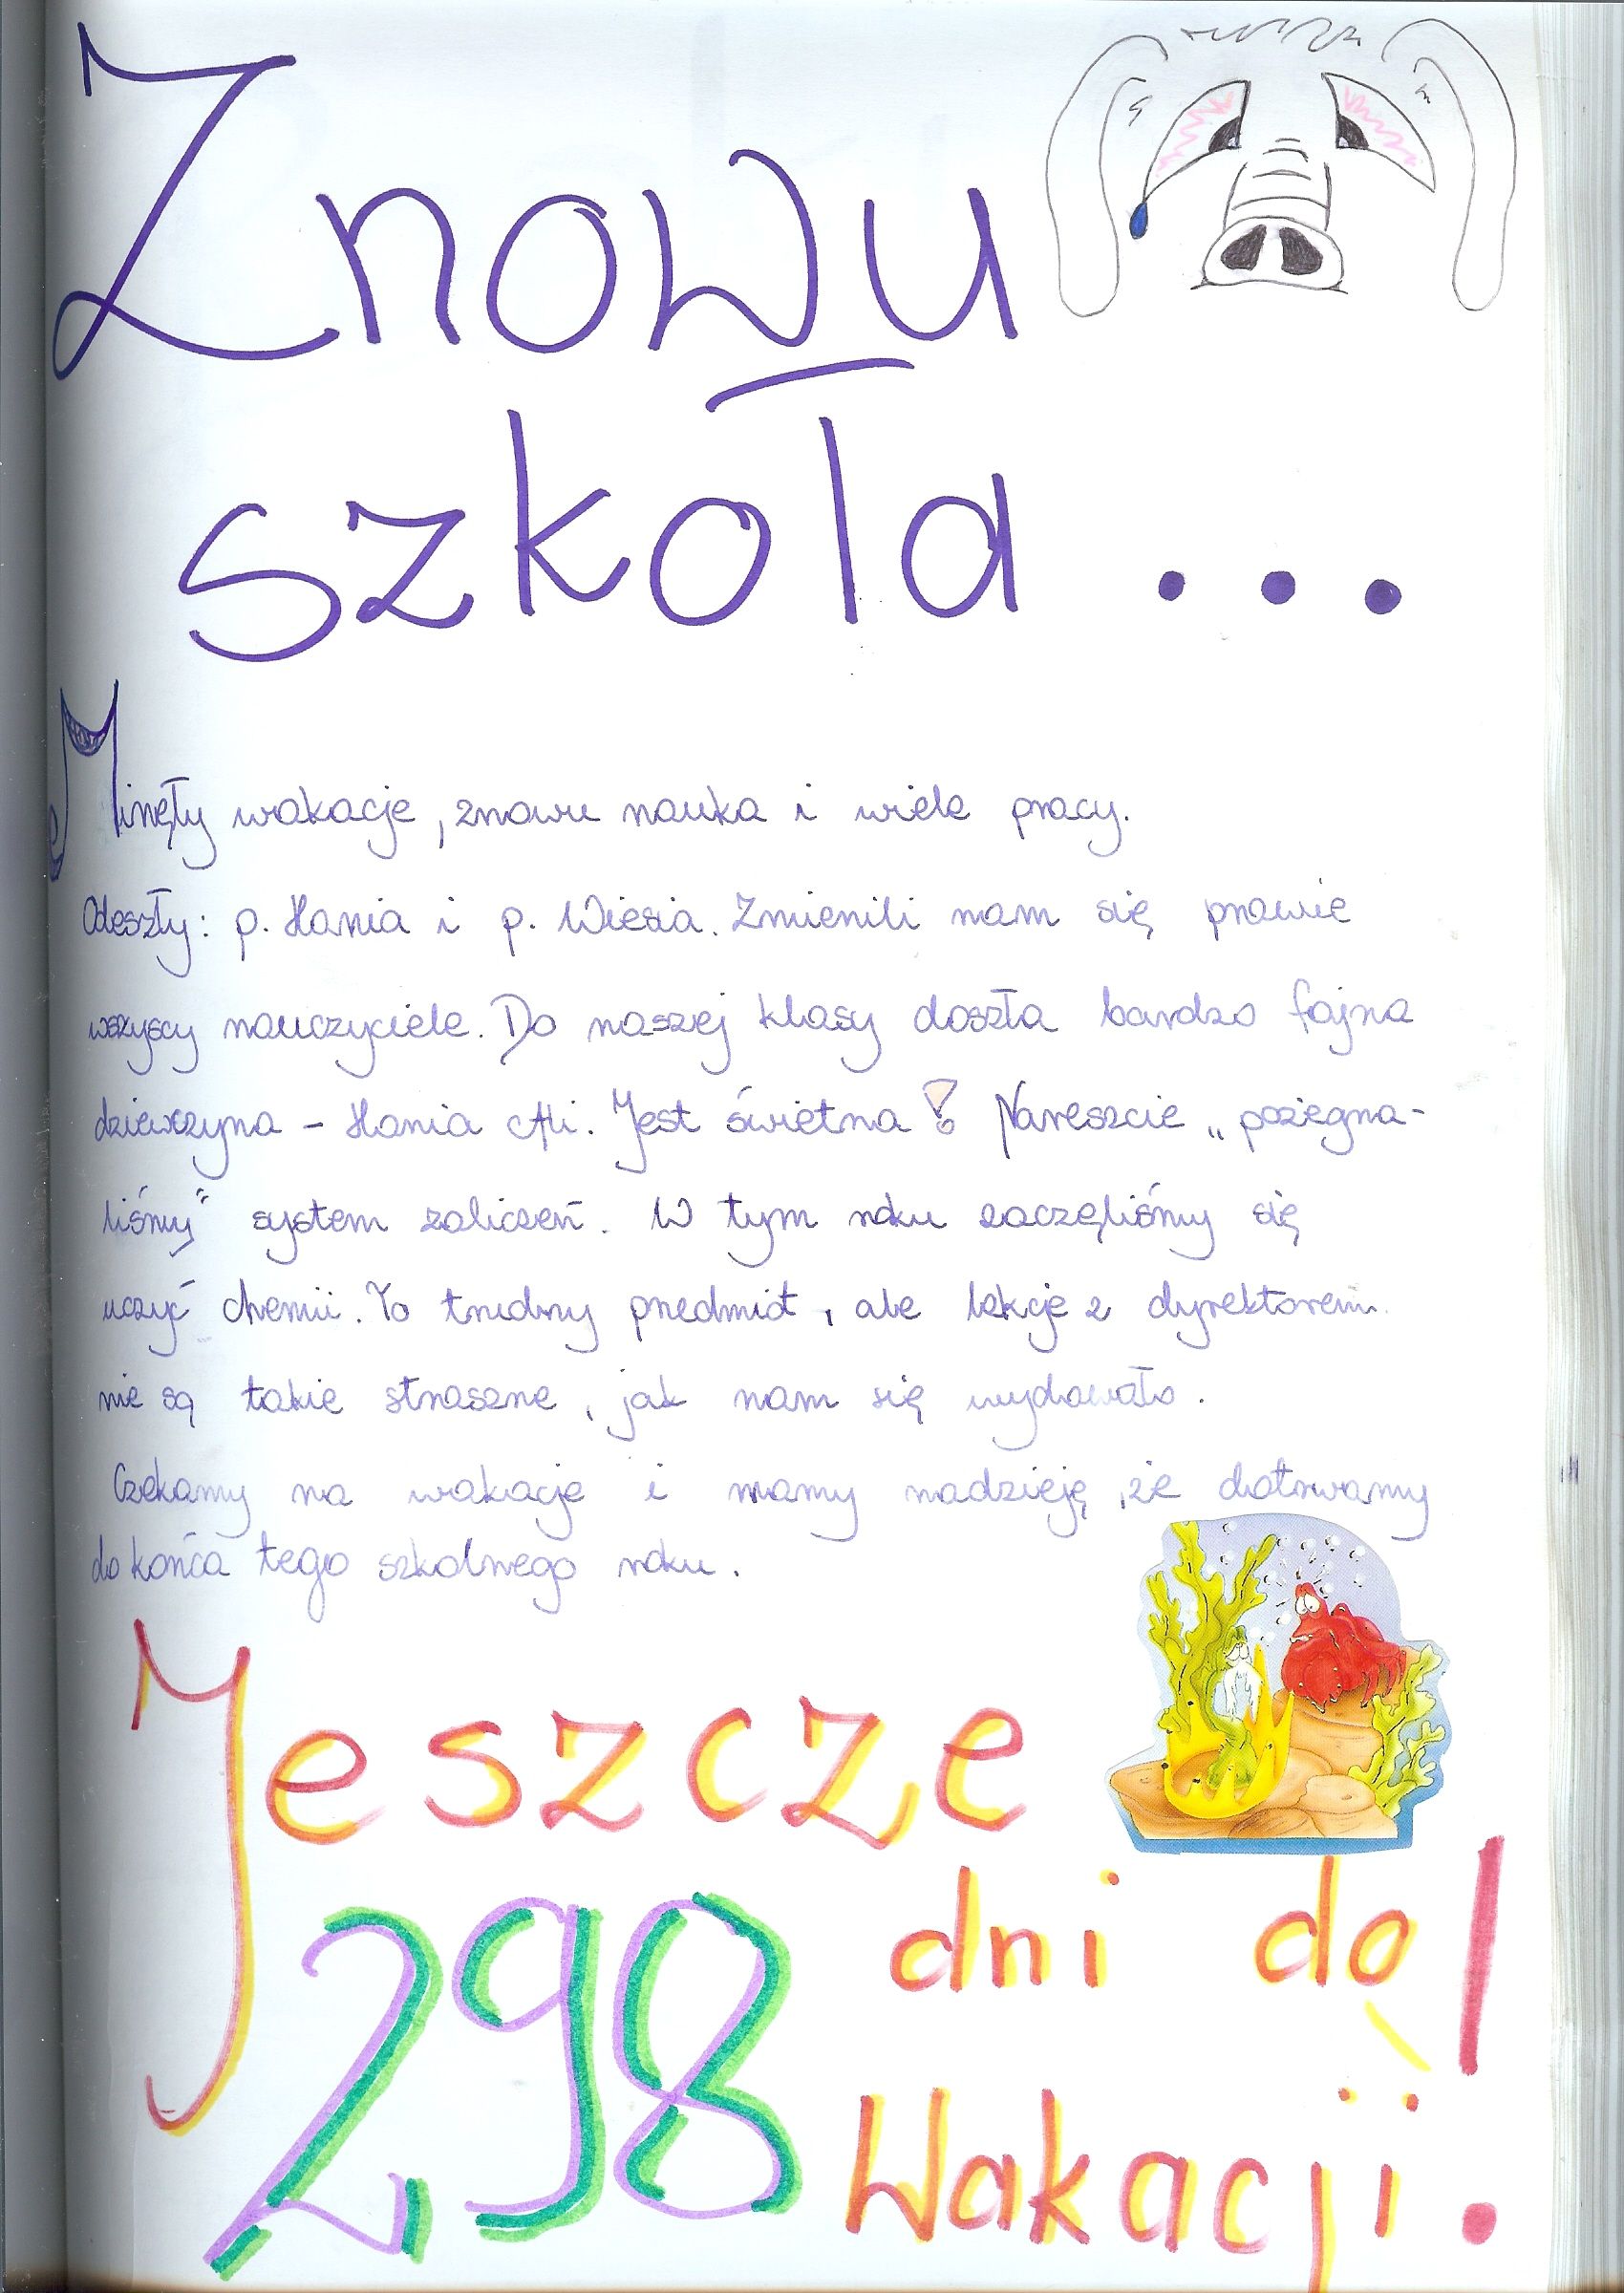 Znowu
szkoła...
Minęły wakacje, znowu nauka i wiele pracy.
Odeszły: p. Hania i p. Wiesia. Zmienili nam się prawie
wszyscy nauczyciele. Do naszej klasy doszła bardzo fajna
dziewczyna - Hania Ali. Jest świetna! Nareszcie „pożegna-
liśmy" system zaliczeń. W tym roku zaczęliśmy się
uczyć chemii. To trudny przedmiot, ale lekcje z dyrektorem
nie są takie straszne, jak nam się wydawało.
Czekamy na wakacje i mamy nadzieję, że dotrwamy
do końca tego szkolnego roku.
Jeszcze
298 dni do
wakacji!